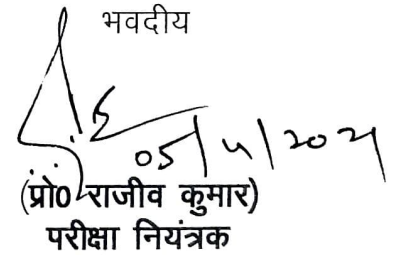 भवदीय
05/4/2021
(प्रो0 राजीव कुमार)
परीक्षा नियंत्रक